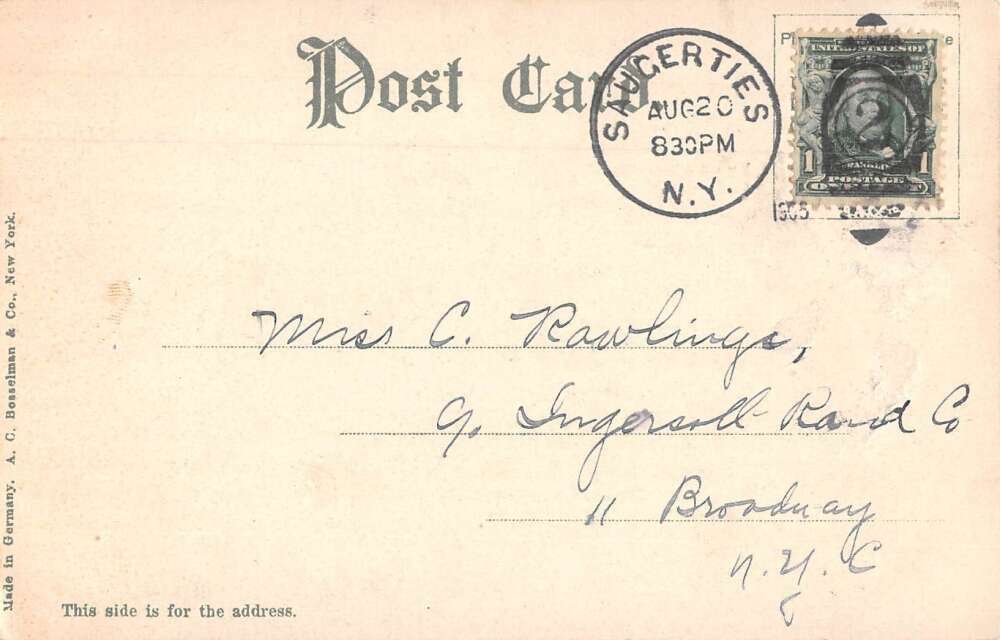 Post Card
SAUGERTIES
AUG 20
830PM
N.Y.
UNITED STATES OF
2
FRANKLIN
1 POSTAGE 1
Miss C. Rawlings,
c/o Ingersoll-Rand Co
11 Broadway
N.Y.C
This side is for the address.
Made in Germany, A. C. Bosselman & Co., New York.